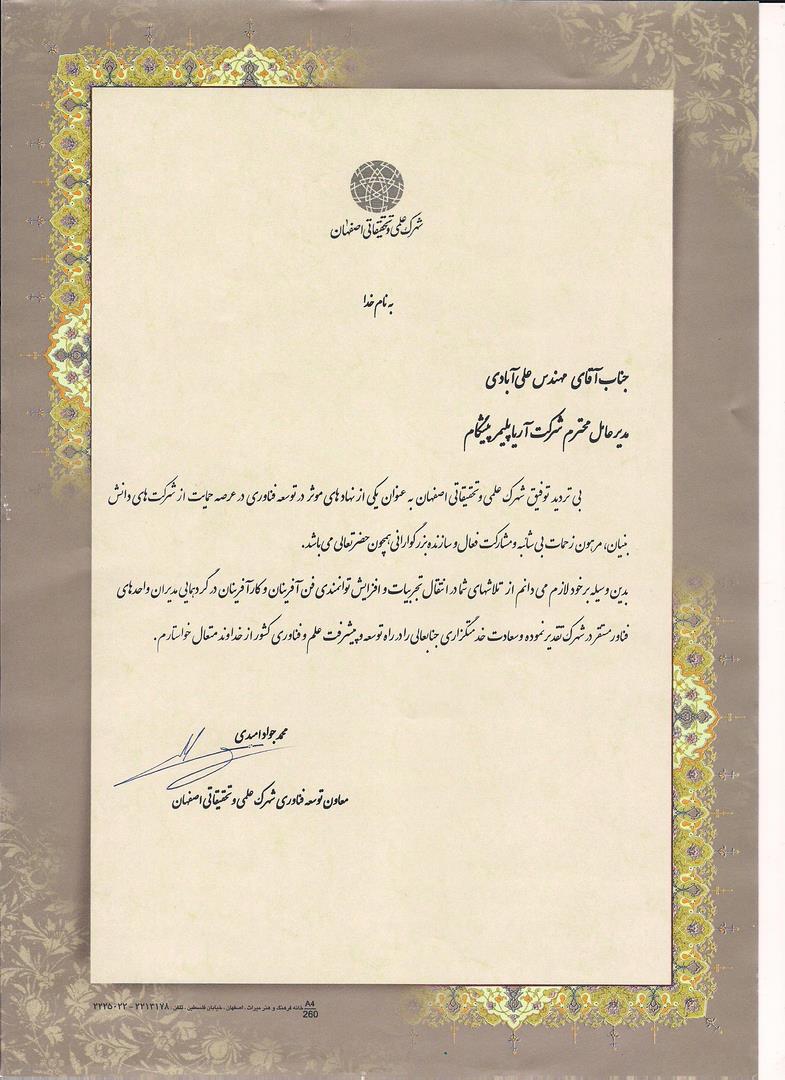 شهرک علمی و تحقیقاتی اصفهان
به نام خدا
جناب آقای مهندس علی آبادی
مدیر عامل محترم شرکت آریا پلیمر پیشگام
بی تردید توفیق شهرک علمی و تحقیقاتی اصفهان به عنوان یکی از نهادهای موثر در توسعه فناوری در عرصه حمایت از شرکت های دانش
بنیان، مرهون زحمات بی شائبه و مشارکت فعال و سازنده بزرگوارانی همچون حضرتعالی می باشد.
بدین وسیله بر خود لازم می دانم از تلاشهای شما در انتقال تجربیات و افزایش توانمندی فن آفرینان و کارآفرینان در گردهمایی مدیران واحدهای
فناور مستقر در شهرک تقدیر نموده و سعادت خدمتگزاری جنابعالی را در راه توسعه و پیشرفت علم و فناوری کشور از خداوند متعال خواستارم.
محمد جواد امیدی
معاون توسعه فناوری شهرک علمی و تحقیقاتی اصفهان
A4
260
خانه فرهنگ و هنر میراث . اصفهان . خیابان فلسطین . تلفن: ۲۲۱۳۱۷۸ - ۲۲۲۵۰۲۲